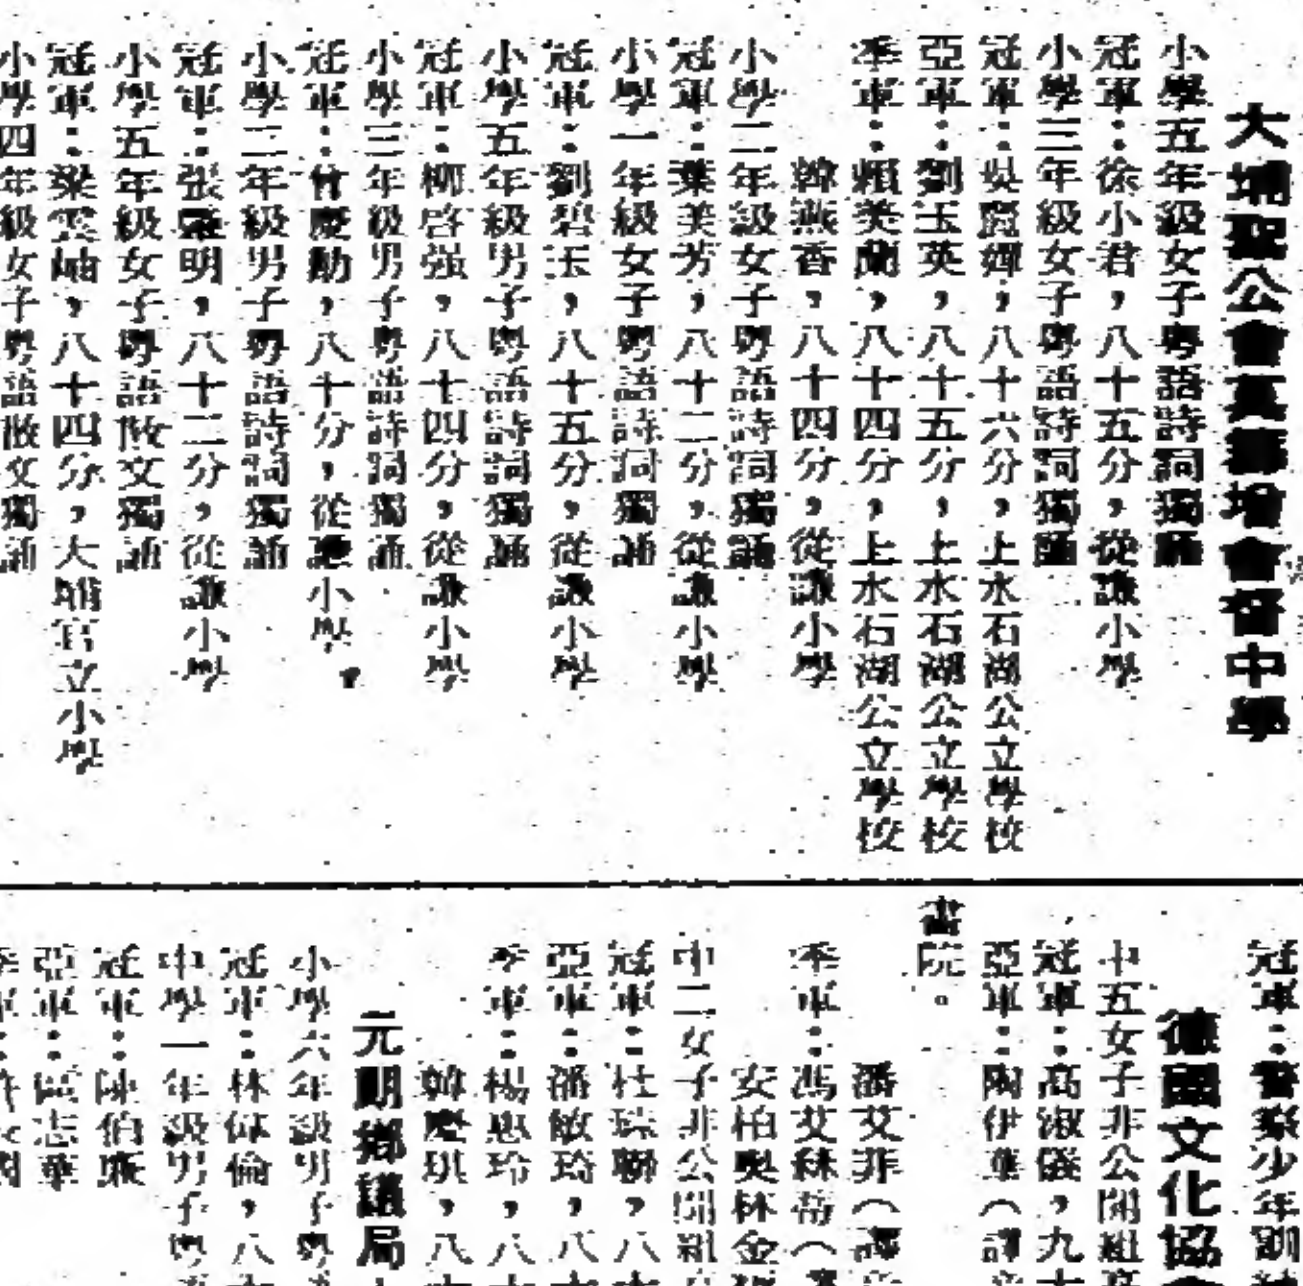 大埔聖公會莫壽增會督中學
小學五年級女子粵語詩詞獨誦
冠軍：徐小君，八十五分，從謙小學
小學三年級女子粵語詩詞獨誦
冠軍：吳麗嬋，八十六分，上水石湖公立學校
亞軍：劉玉英，八十五分，上水石湖公立學校
季軍：賴美蘭，八十四分，上水石湖公立學校
韓燕香，八十四分，從謙小學
小學二年級女子粵語詩詞獨誦
冠軍：葉美芳，八十二分，從謙小學
小學一年級女子粵語詩詞獨誦
冠軍：劉碧玉，八十五分，從謙小學
小學五年級男子粵語詩詞獨誦
冠軍：柳啓强，八十四分，從謙小學
小學三年級男子粵語詩詞獨誦
冠軍：曾慶勳，八十分，從謙小學
小學二年級男子粵語詩詞獨誦
冠軍：張明，八十二分，從謙小學
小學五年級女子粵語散文獨誦
冠軍：梁雲，八十四分，大埔官立小學
小學四年級女子粵語散文獨誦
冠軍：警察少年訓
德國文化協
中五女子非公開組
冠軍：高淑儀，九十
亞軍：陶伊華（譯
書院。
潘艾菲（譯
季軍：馮艾秝蒂（
安柏奧林金
中二女子非公開組
冠軍：杜瑞聯，八
亞軍：潘敏琦，八
季軍：楊惠玲，八
韓慶琪，八
元朗鄉議局
小學六年級男子粵
冠軍：林倫，八
中學一年級男子粵
冠軍：陳伯廉
亞軍：區志華
季軍：許